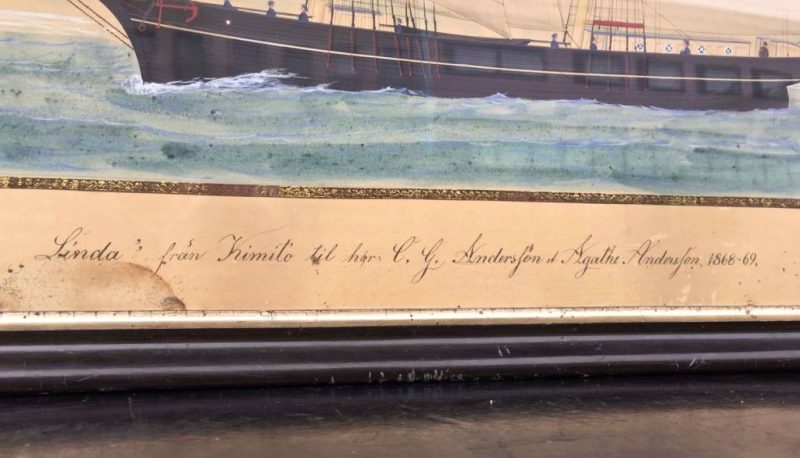 Linda” från Kimito til hör. C. G. Andersson et Agathe Andersson, 1868-69.